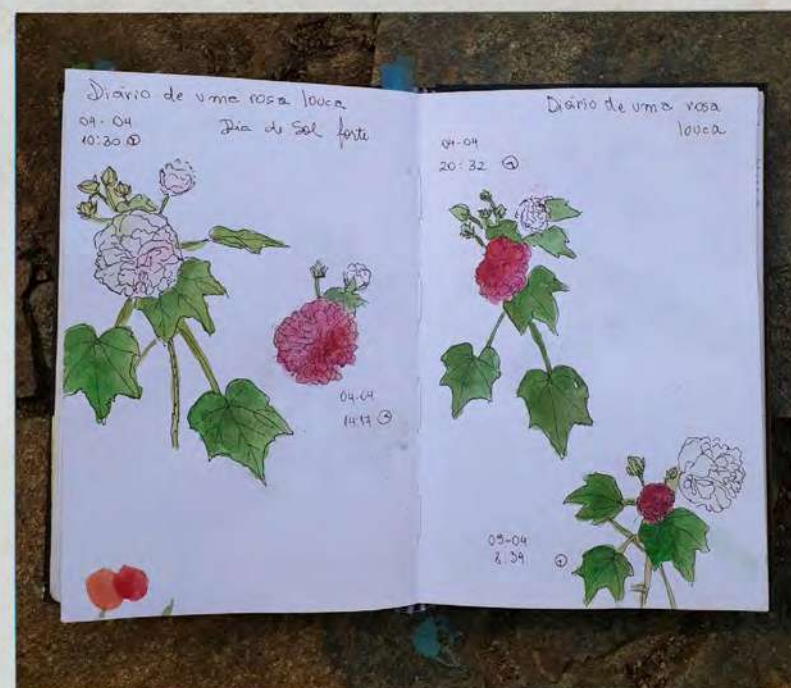 Diário de uma rosa louca
04-04
Dia de Sol forte
10:30 ①
04-04
14:17
Diário de uma rosa
louca
04-04
20:32
8:39